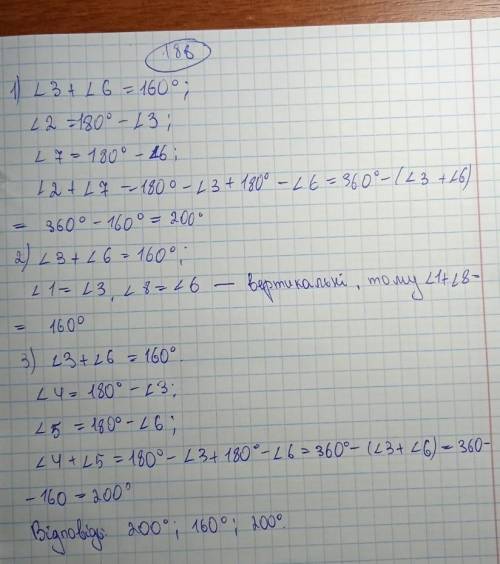 188
1) ∠3 + ∠6 = 160°;
∠2 = 180° - ∠3;
∠7 = 180° - ∠6;
∠2 + ∠7 = 180° - ∠3 + 180° - ∠6 = 360° - (∠3 + ∠6)
= 360° - 160° = 200°
2) ∠3 + ∠6 = 160°;
∠1 = ∠3, ∠8 = ∠6 — вертикальні, тому ∠1+∠8 =
= 160°
3) ∠3 + ∠6 = 160°.
∠4 = 180° - ∠3;
∠5 = 180° - ∠6;
∠4 + ∠5 = 180° - ∠3 + 180° - ∠6 = 360° - (∠3 + ∠6) = 360 -
- 160 = 200°
Відповідь: 200°; 160°; 200°.